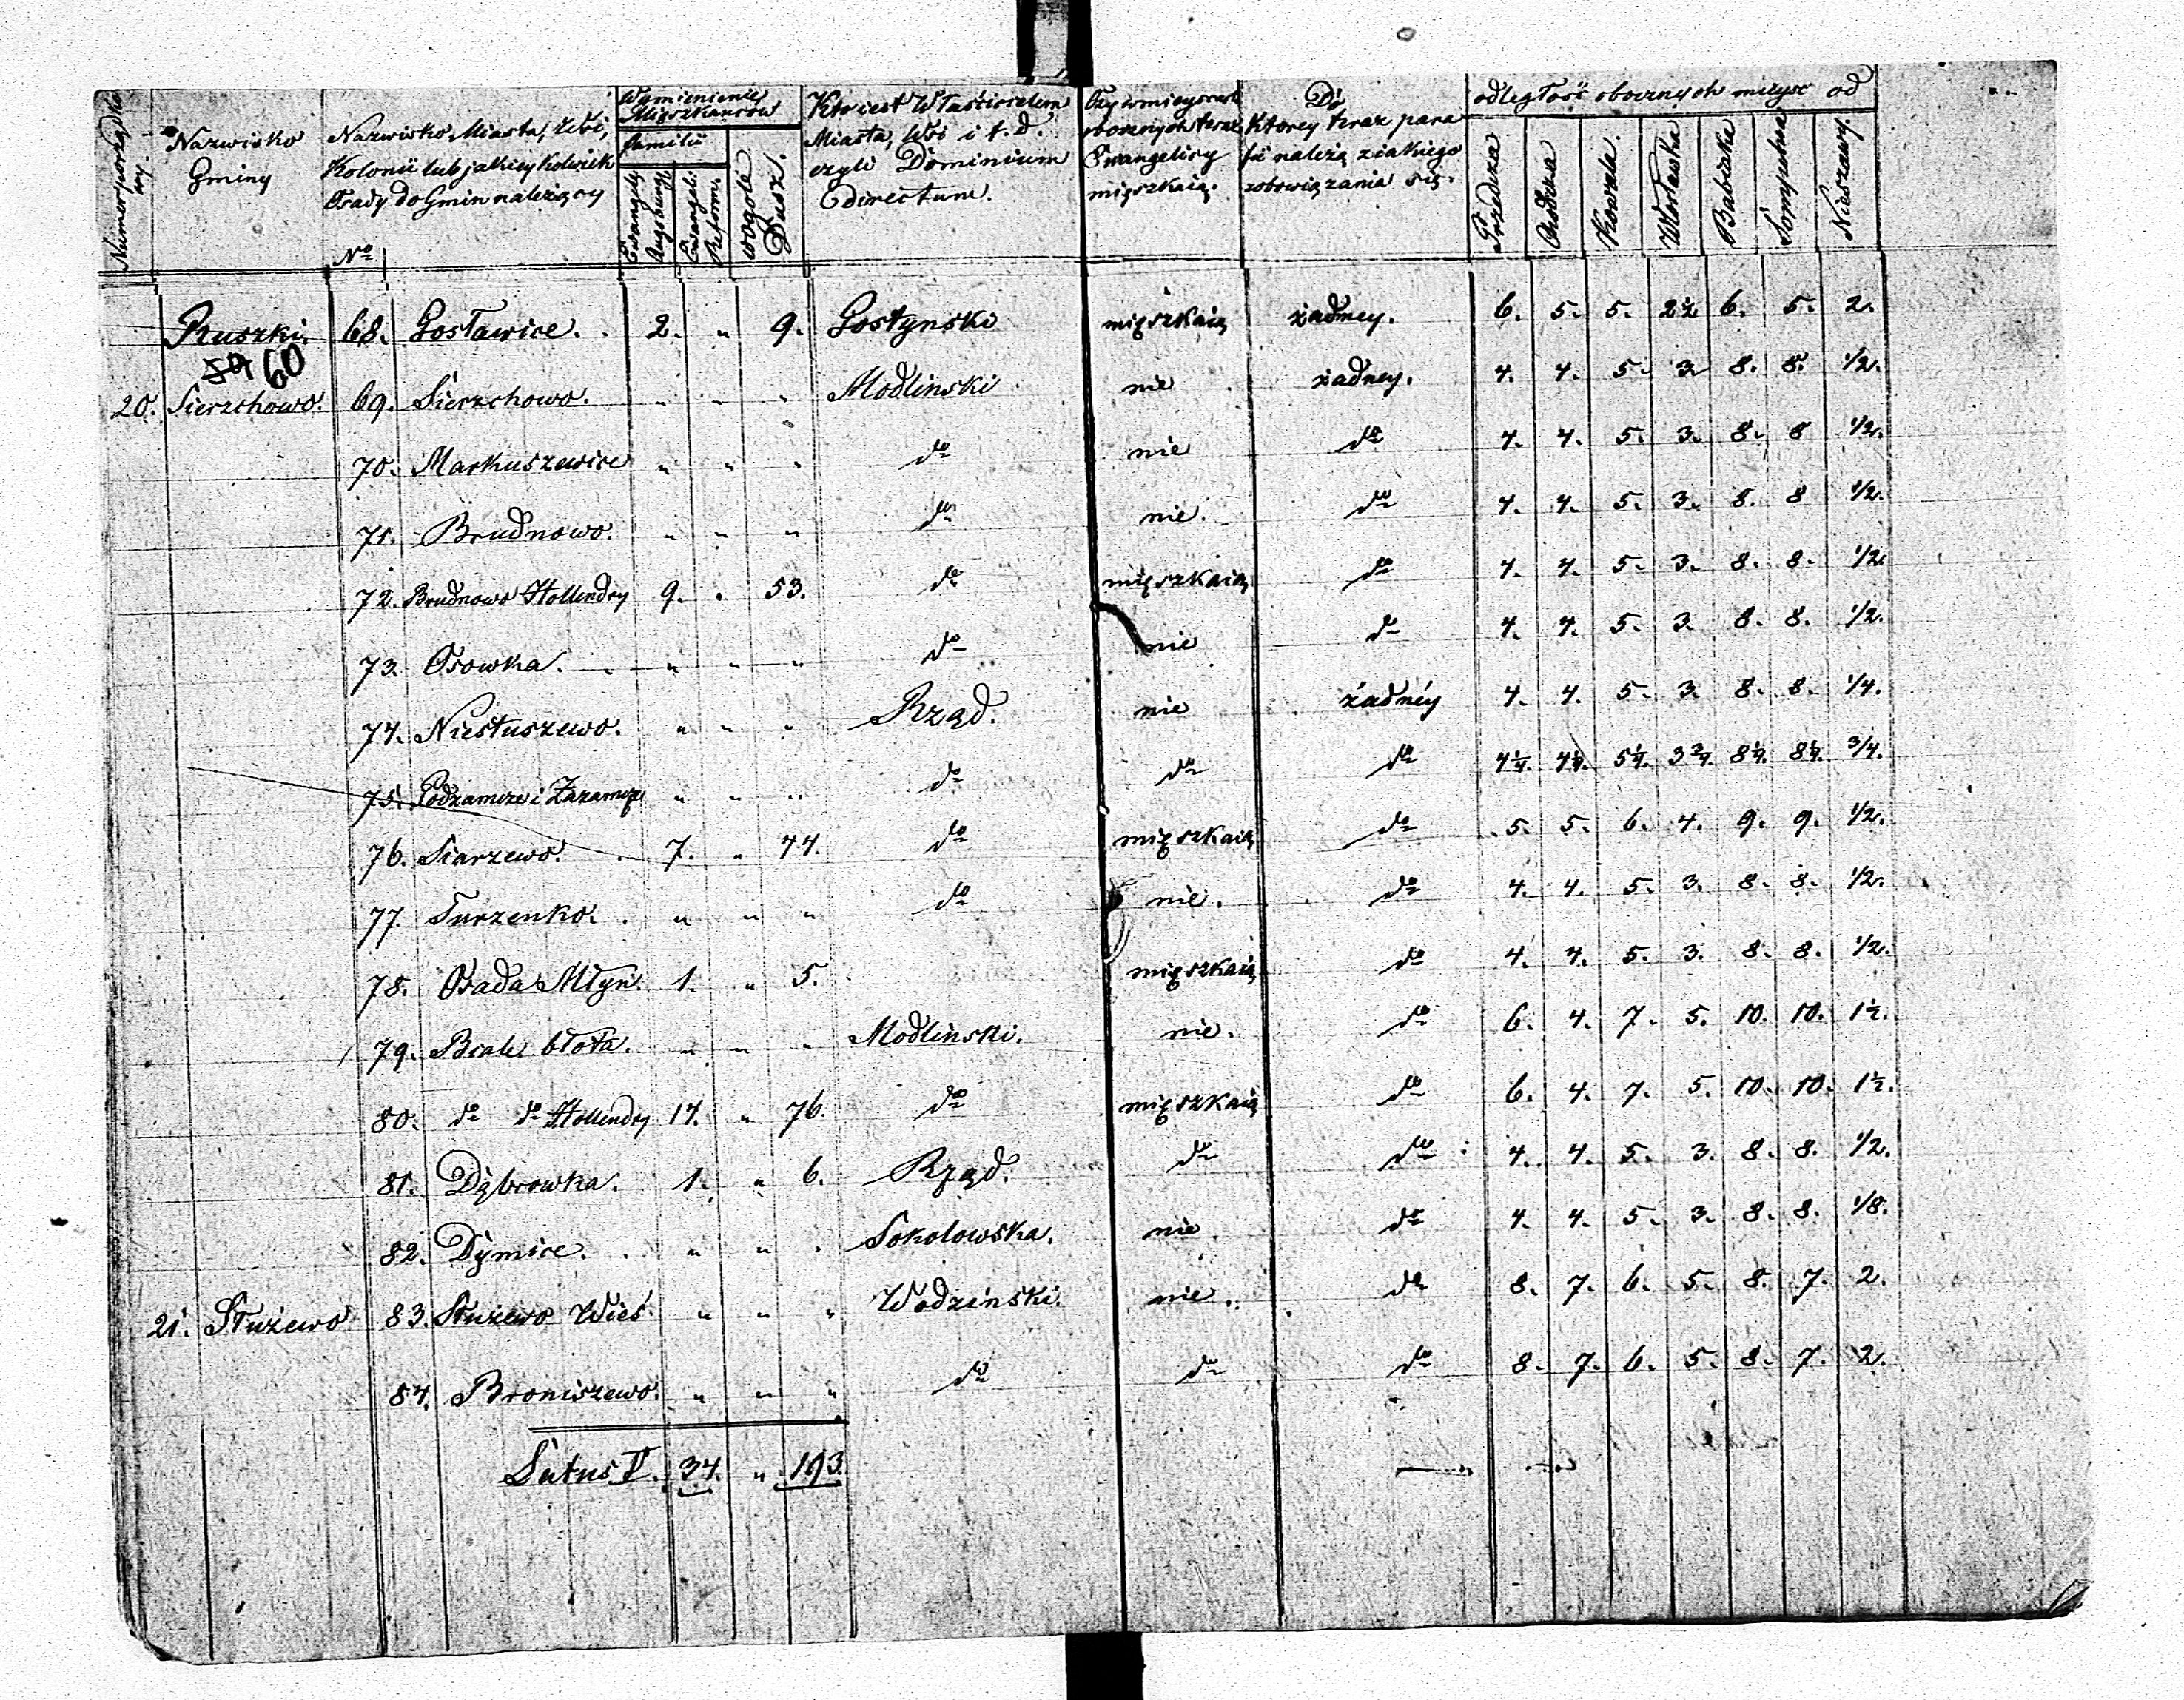 Numer porządkowy.
Nazwisko Gminy
Nazwisko Miasta, Wsi, Kolonii lub jakiey kolwiek Osady do Gmin należący
No
Wymienienie Mięszkancow
familii
Ewangel. Augsburg.
Ewangeli. Reform.
wogóle Dusz.
Kto iest Właścicielem Miasta, Wsi i t. d. czyli Dominium directum.
Czy w mieyscach obocznych teraz Ewangelicy mięszkaią.
Do ktorey teraz parafii należą z iakiego zobowiązania się.
odległość obocznych mieysc od
Przedcza
Chodcza
Kowala.
Włocławka
Babiaka
Sompolna
Nieszawy.
Ruszki. 68. Gosławice. 2. " 9. Gostynski mięszkaią żadney. 6. 5. 5. 2½ 6. 5. 2.
59 60
20. Sierzchowo. 69. Sierzchowo. " " " Modlinski nie żadney. 4. 4. 5. 3. 8. 8. 1/2.
70. Markuszewice " " " do nie do 4. 4. 5. 3. 8. 8 1/2.
71. Brudnowo. " " " do nie. do 4. 4. 5. 3. 8. 8 1/2.
72. Brudnowo Hollendry 9. " 53. do mięszkaią do 4. 4. 5. 3. 8. 8. 1/2
73. Osowka. " " " do nie do 4. 4. 5. 3. 8. 8. 1/2.
74. Niestuszewo. " " " Rząd. nie żadnéy 4. 4. 5. 3. 8. 8. 1/4.
75. Podzamcze i Zazamcze " " " do do do 4¼. 4¼. 5¼. 3¾. 8¼. 8¼. 3/4.
76. Siarzewo. 7. " 44. do mięszkaią do 5. 5. 6. 4. 9. 9. 1/2.
77. Turzenko. " " " do nie. do 4. 4. 5. 3. 8. 8. 1/2.
78. Osada Młyn. 1. " 5. mięszkaią do 4. 4. 5. 3. 8. 8. 1/2.
79. Białe błota. " " " Modlinski. nie. do 6. 4. 7. 5. 10. 10. 1½.
80. do do Hollendry 14. " 76. do mięszkaią do 6. 4. 7. 5. 10. 10. 1½.
81. Dąbrowka. 1. " 6. Rząd. do do 4. 4. 5. 3. 8. 8. 1/2.
82. Dymice. " " " Sokolowska. nie do 4. 4. 5. 3. 8. 8. 1/8.
21. Służewo 83. Służewo Wieś " " " Wodzinski. nie. do 8. 7. 6. 5. 8. 7. 2.
84. Broniszewo. " " " do do do 8. 7. 6. 5. 8. 7. 2.
Latus V. 34. " 193.